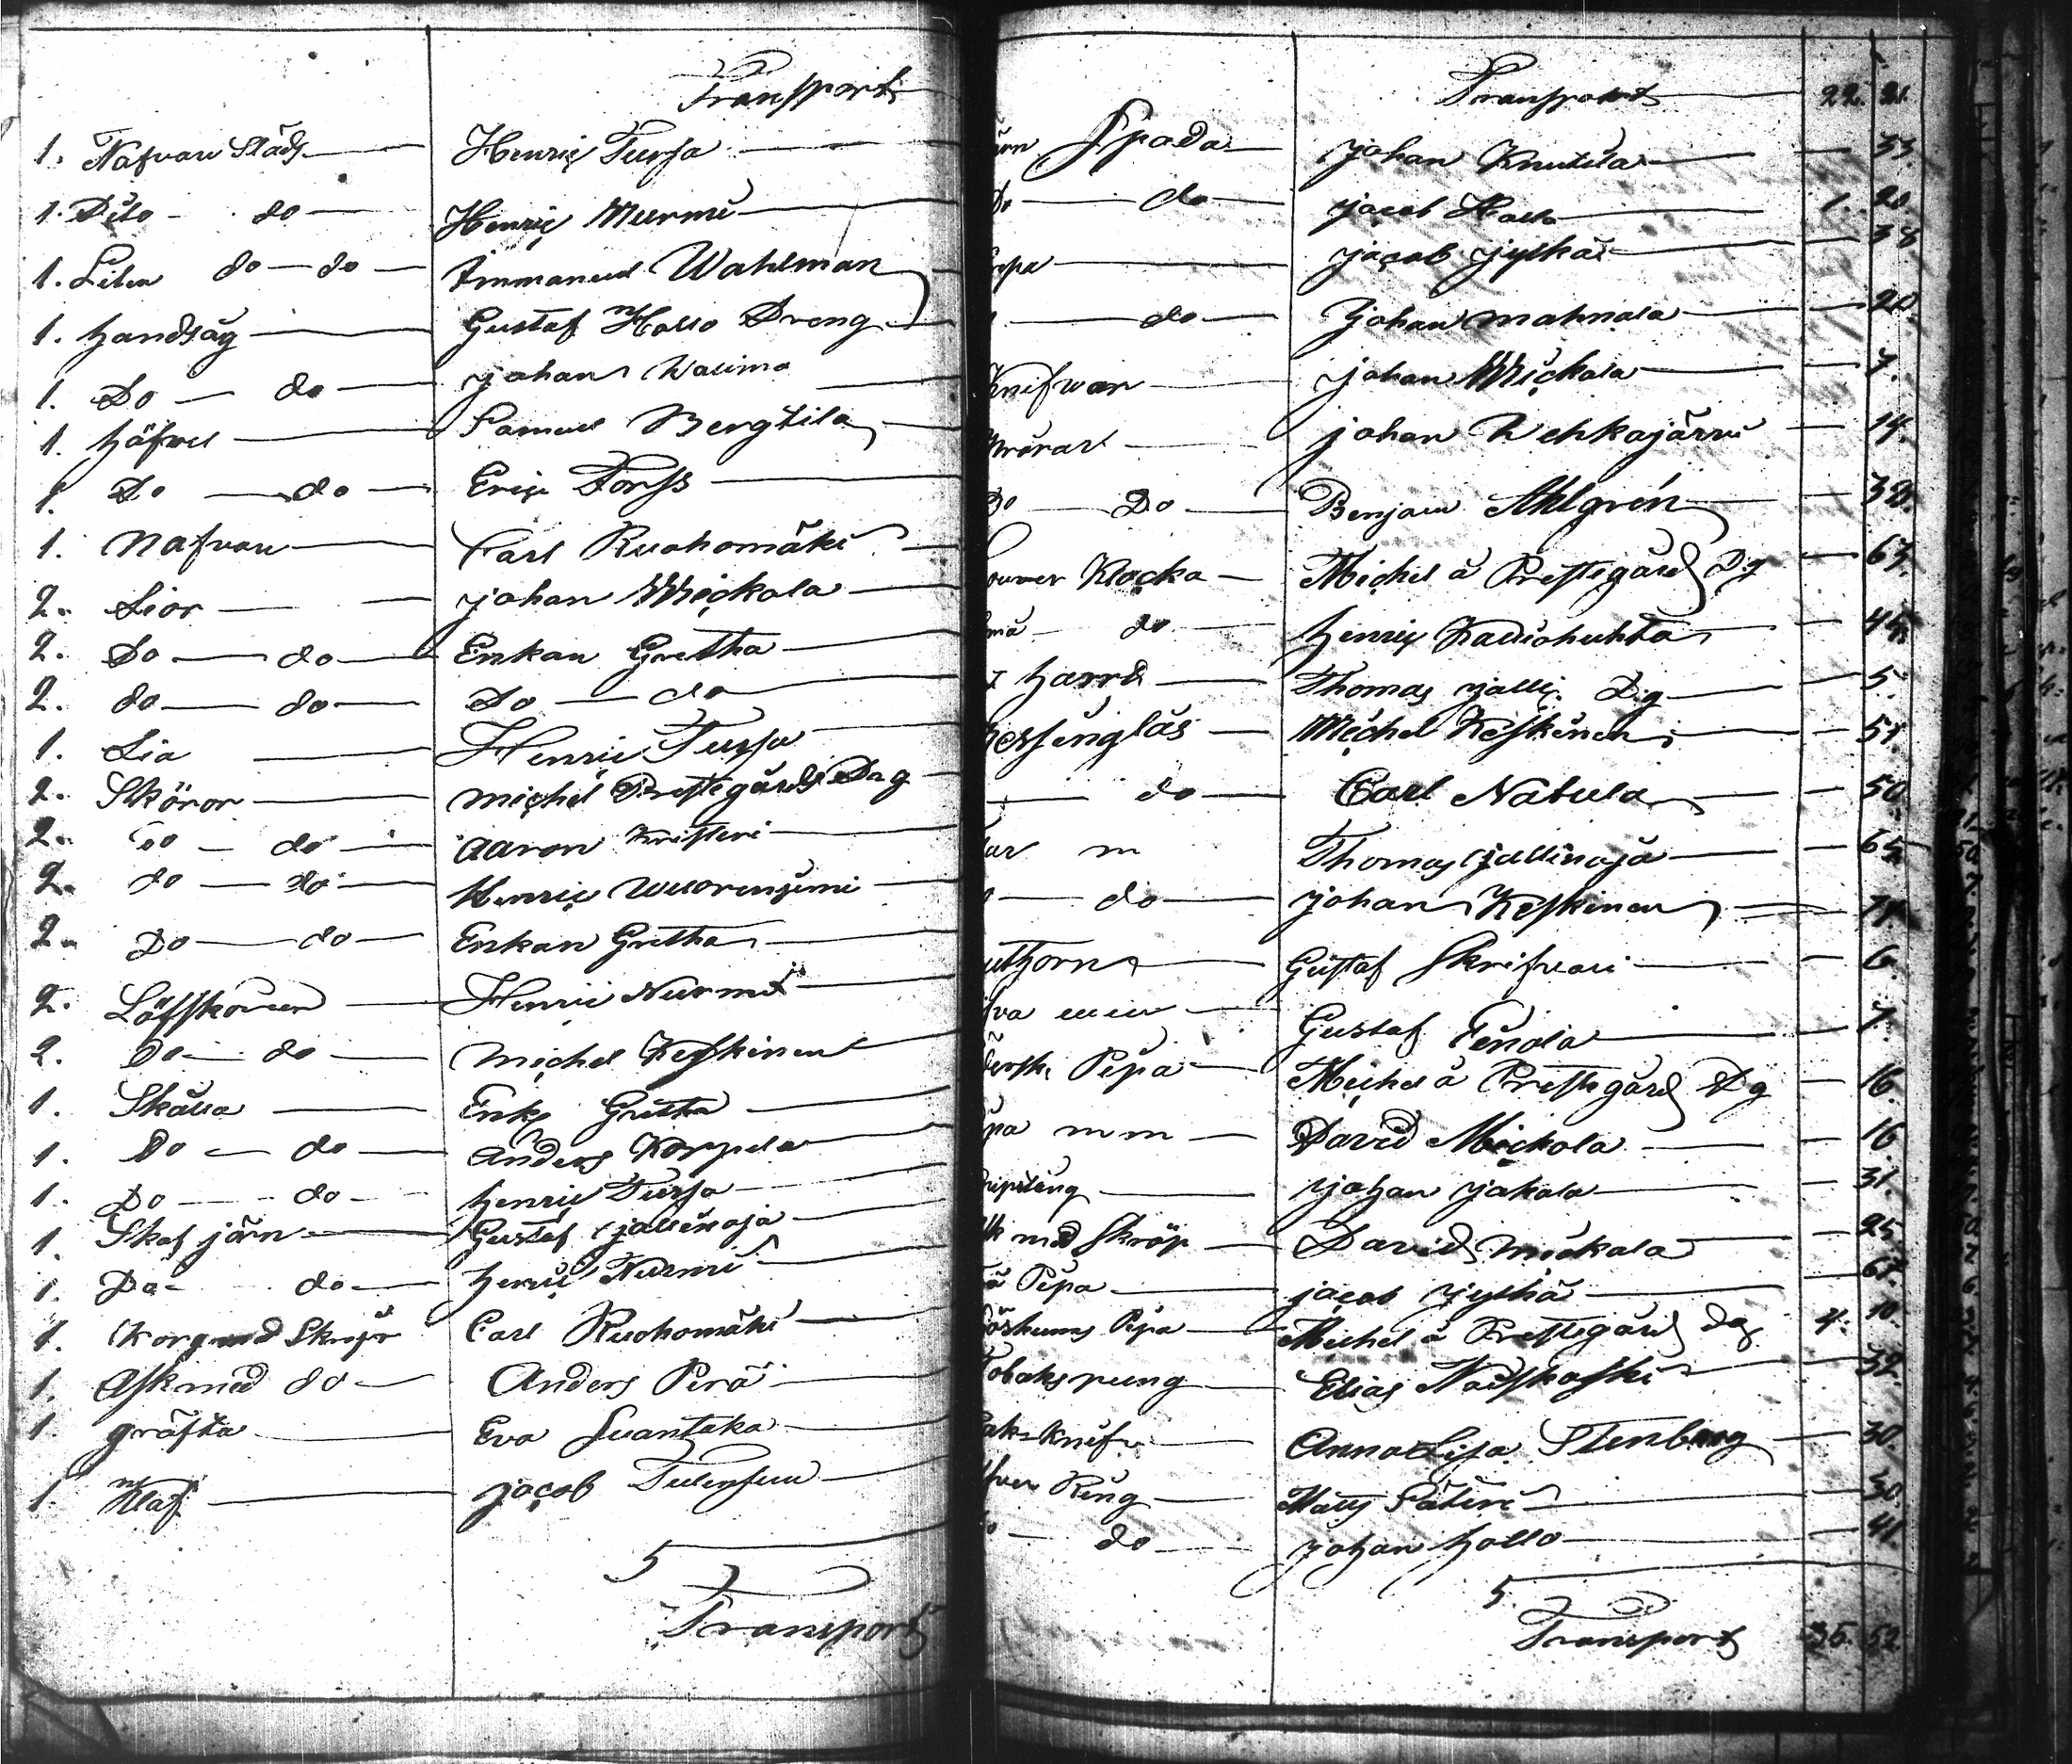 Transport
1. Nafvare Städ Henric Tursa
1. Dito do Henric Murmi
1. Liten do do Immanuel Wahlman
1. handsåg Gustaf Hollo Dreng
1. Do do johan Walima
1. höfvel Samuel Bergtila
1. Do do Eric Forss
1. Nafvare Carl Ruohomäki
2. Lior johan Mickala
2. Do do Enkan Gretha
2. do do Do do
1. Lia Henric Tursa
2. Skäror michel Prestegårds Drg
2. Do do Aaron Kristeri
2. do do Henric
2. Do do Enkan Gretha
2. Löfskäror Henric Nurmi
2. Do do Michel Keskinen
1. Skälla Enk Gretha
1. Do do Anders Korpela
1. Do do henric Tursa
1. Skaf järn Gustaf jallinoja
1. Do do henric Nurmi
1. Korg med Skräp Carl Ruohomäki
1. Ask med do Anders Perä
1. gräfta Eva Luantaka
1. Klaf jacob
5
Transport
Transport 22. 21.
Spada johan Knuutila 33.
do jacob Hallo 1. 20.
jacob jylkä 38
do Johan mahnala 20
Knifvar johan Mickala 7.
johan Wehkajärvi 14.
Do Do Benjam Ahlgrén 32.
Klocka Michel å Prestegård Dg 67.
do henric Kauhohuhta 45.
Thomas jalli Dg 5.
Michel Keskinen 51.
do Carl Natula 50.
m Thomas jallinoja 65.
do johan Keskinen 71.
Gustaf Skrifvari 6.
Gustaf Tenola 7.
Pipa Michel å Prestegård Dg 16.
m m David Mickola 16.
johan jakala 31.
med Skräp David Mickala 25.
Pipa jacob jylhä 61.
Pipa Michel å Prestegård Dg 4. 10.
Tobakspung Elias 32.
Knif Anna Lisa Stenberg 30.
Ring Matts Säteri 30.
do johan hollo 41.
5.
Transport 35. 52.